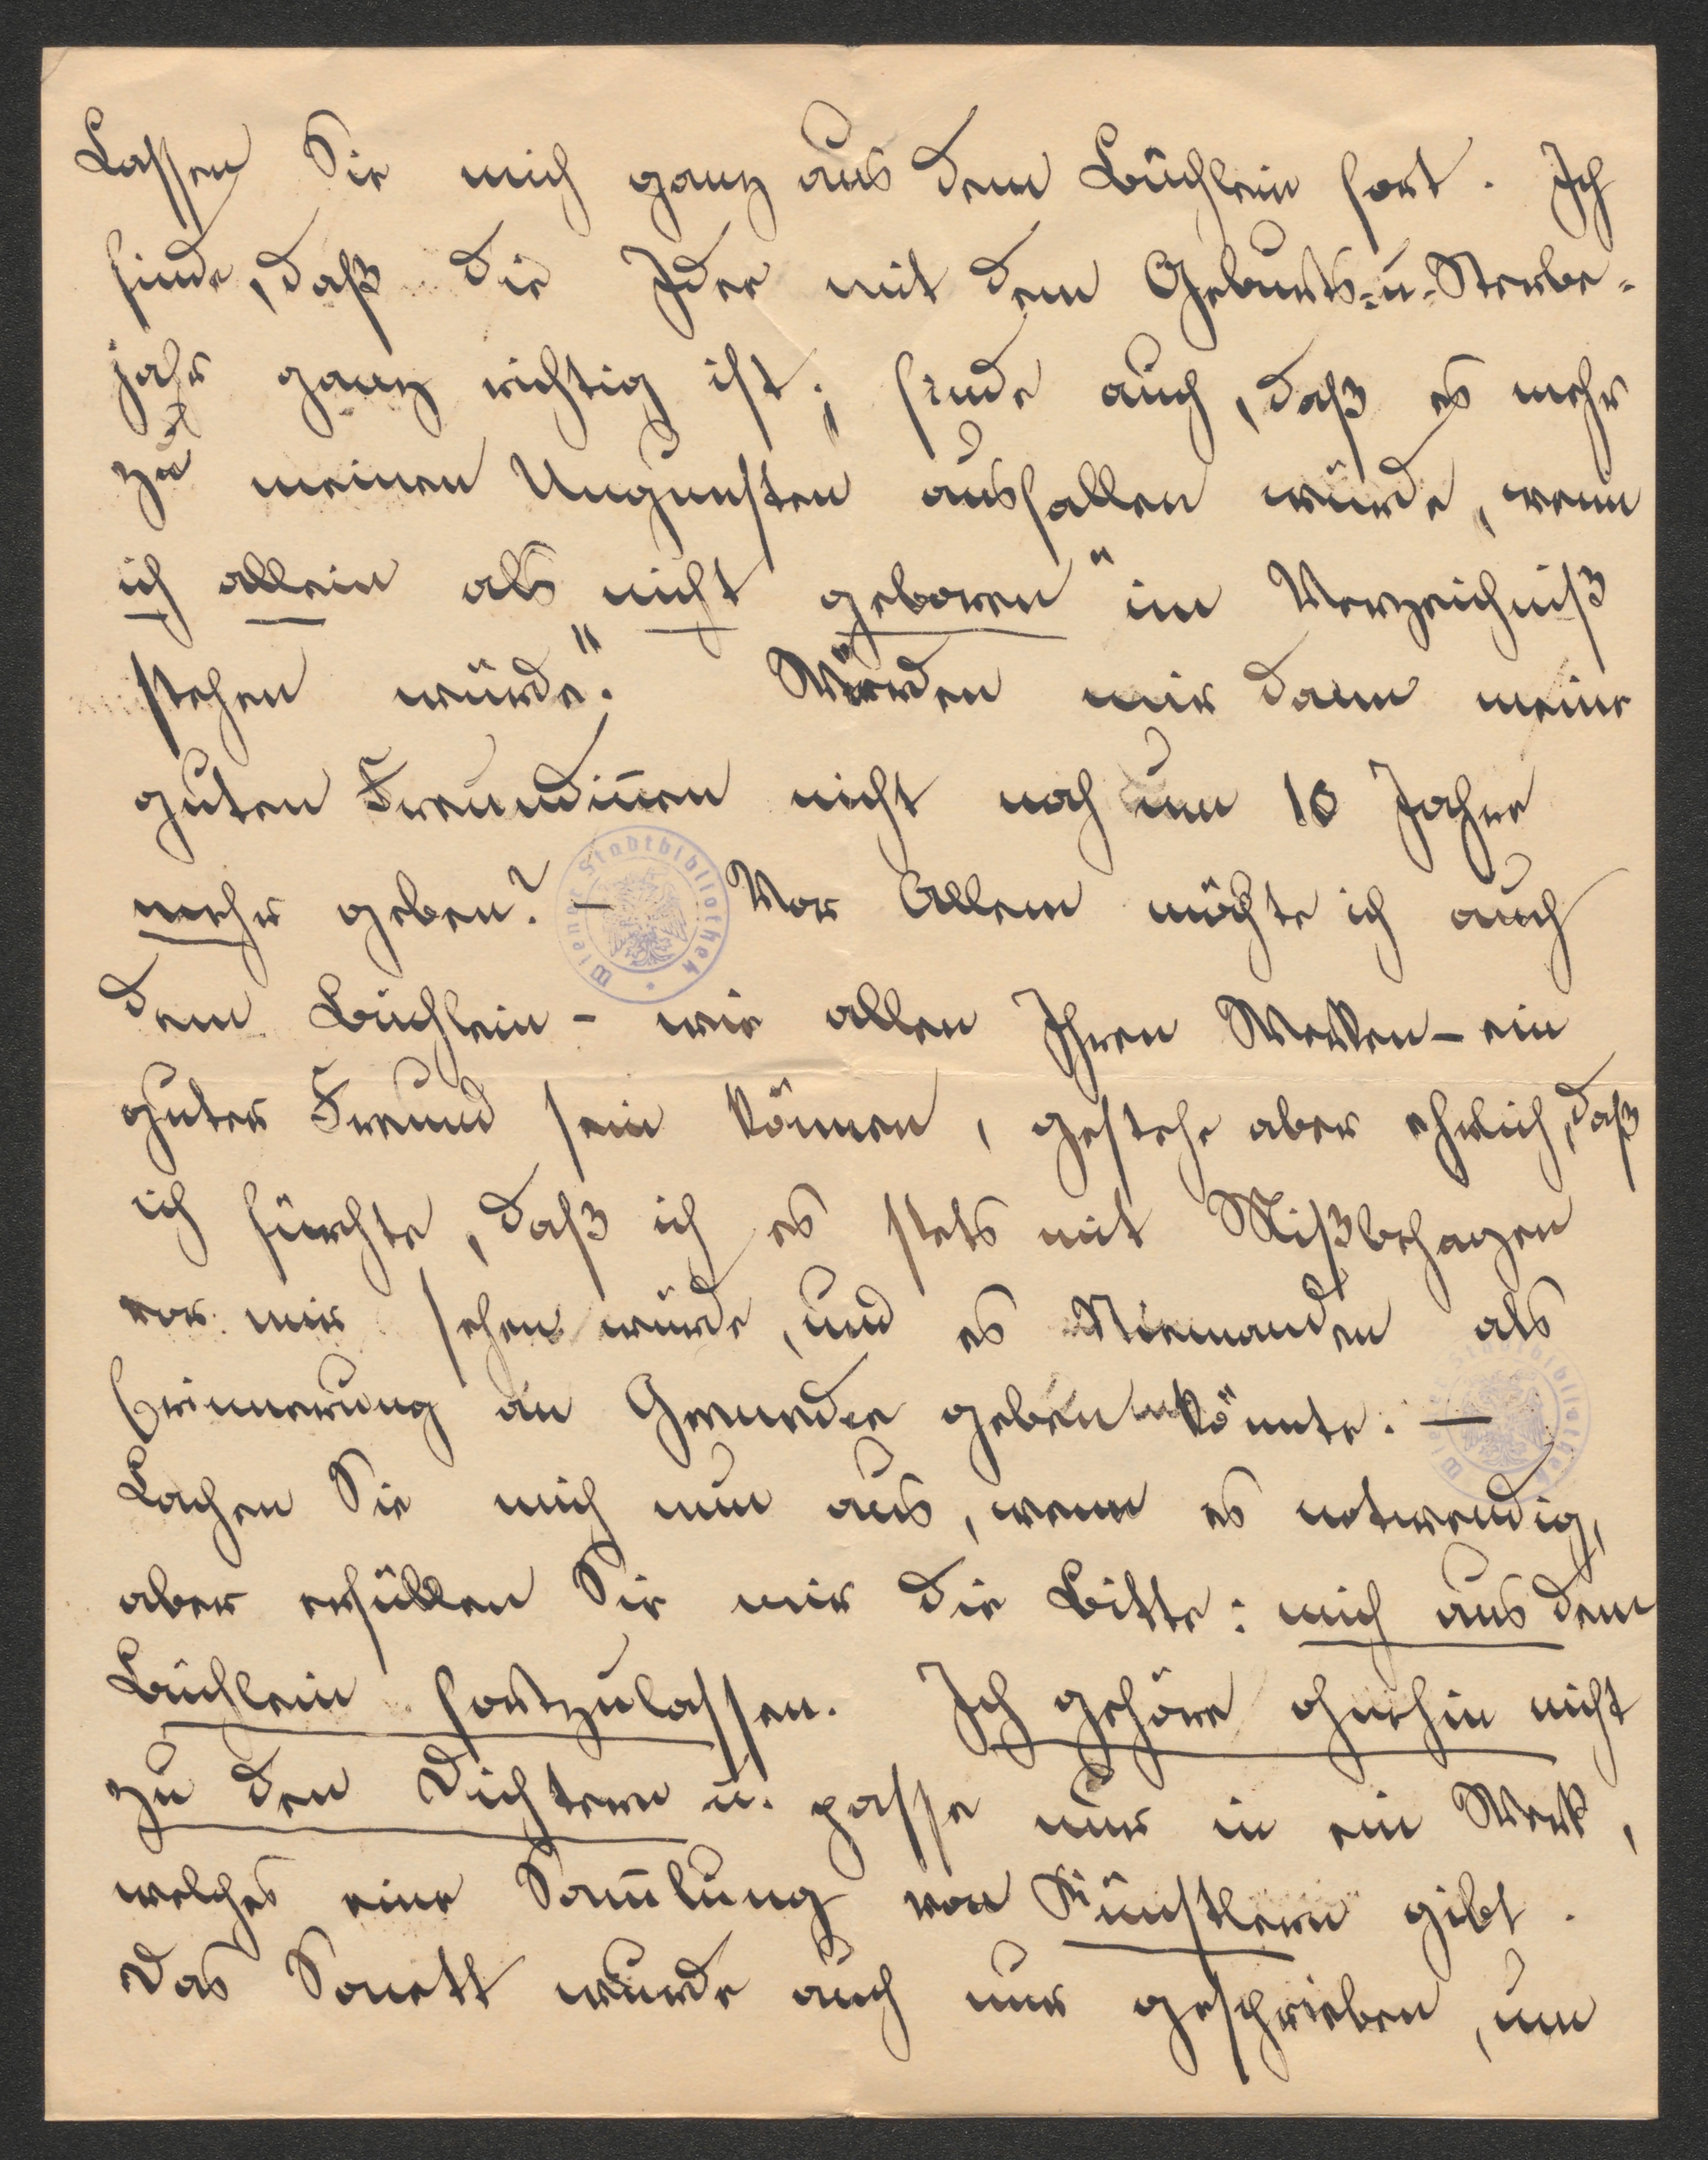 Lassen Sie mich ganz aus dem Büchlein fort. Ich
finde, daß die Idee mit dem Geburts- u. Sterbe-
jahr ganz richtig ist; finde auch, daß es mehr
zu meinen Ungunsten ausfallen würde, wenn
ich allein als "nicht geboren" im Verzeichniß
stehen würde." Würden mir dann meine
guten Freundin̄en nicht noch um 10 Jahre
mehr geben? – Vor Allem möchte ich auch
dem Büchlein – wie allen Ihren Werken – ein
guter Freund sein können, gestehe aber ehrlich, daß
ich fürchte, daß ich es stets mit Mißbehagen
vor mir sehen würde, und es Niemanden als
Erinnerung an Gmunden geben könnte. –
Lachen Sie mich nun aus, wenn es notwendig,
aber erfüllen Sie mir die Bitte: mich aus dem
Büchlein fortzulassen. Ich gehöre ohnehin nicht
zu den Dichtern u. passe nur in ein Werk,
welches eine Sam̄lung von Künstlern gibt.
Das Sonett wurde auch nur geschrieben, um
Wiener Stadtbibliothek
Wiener Stadtbibliothek